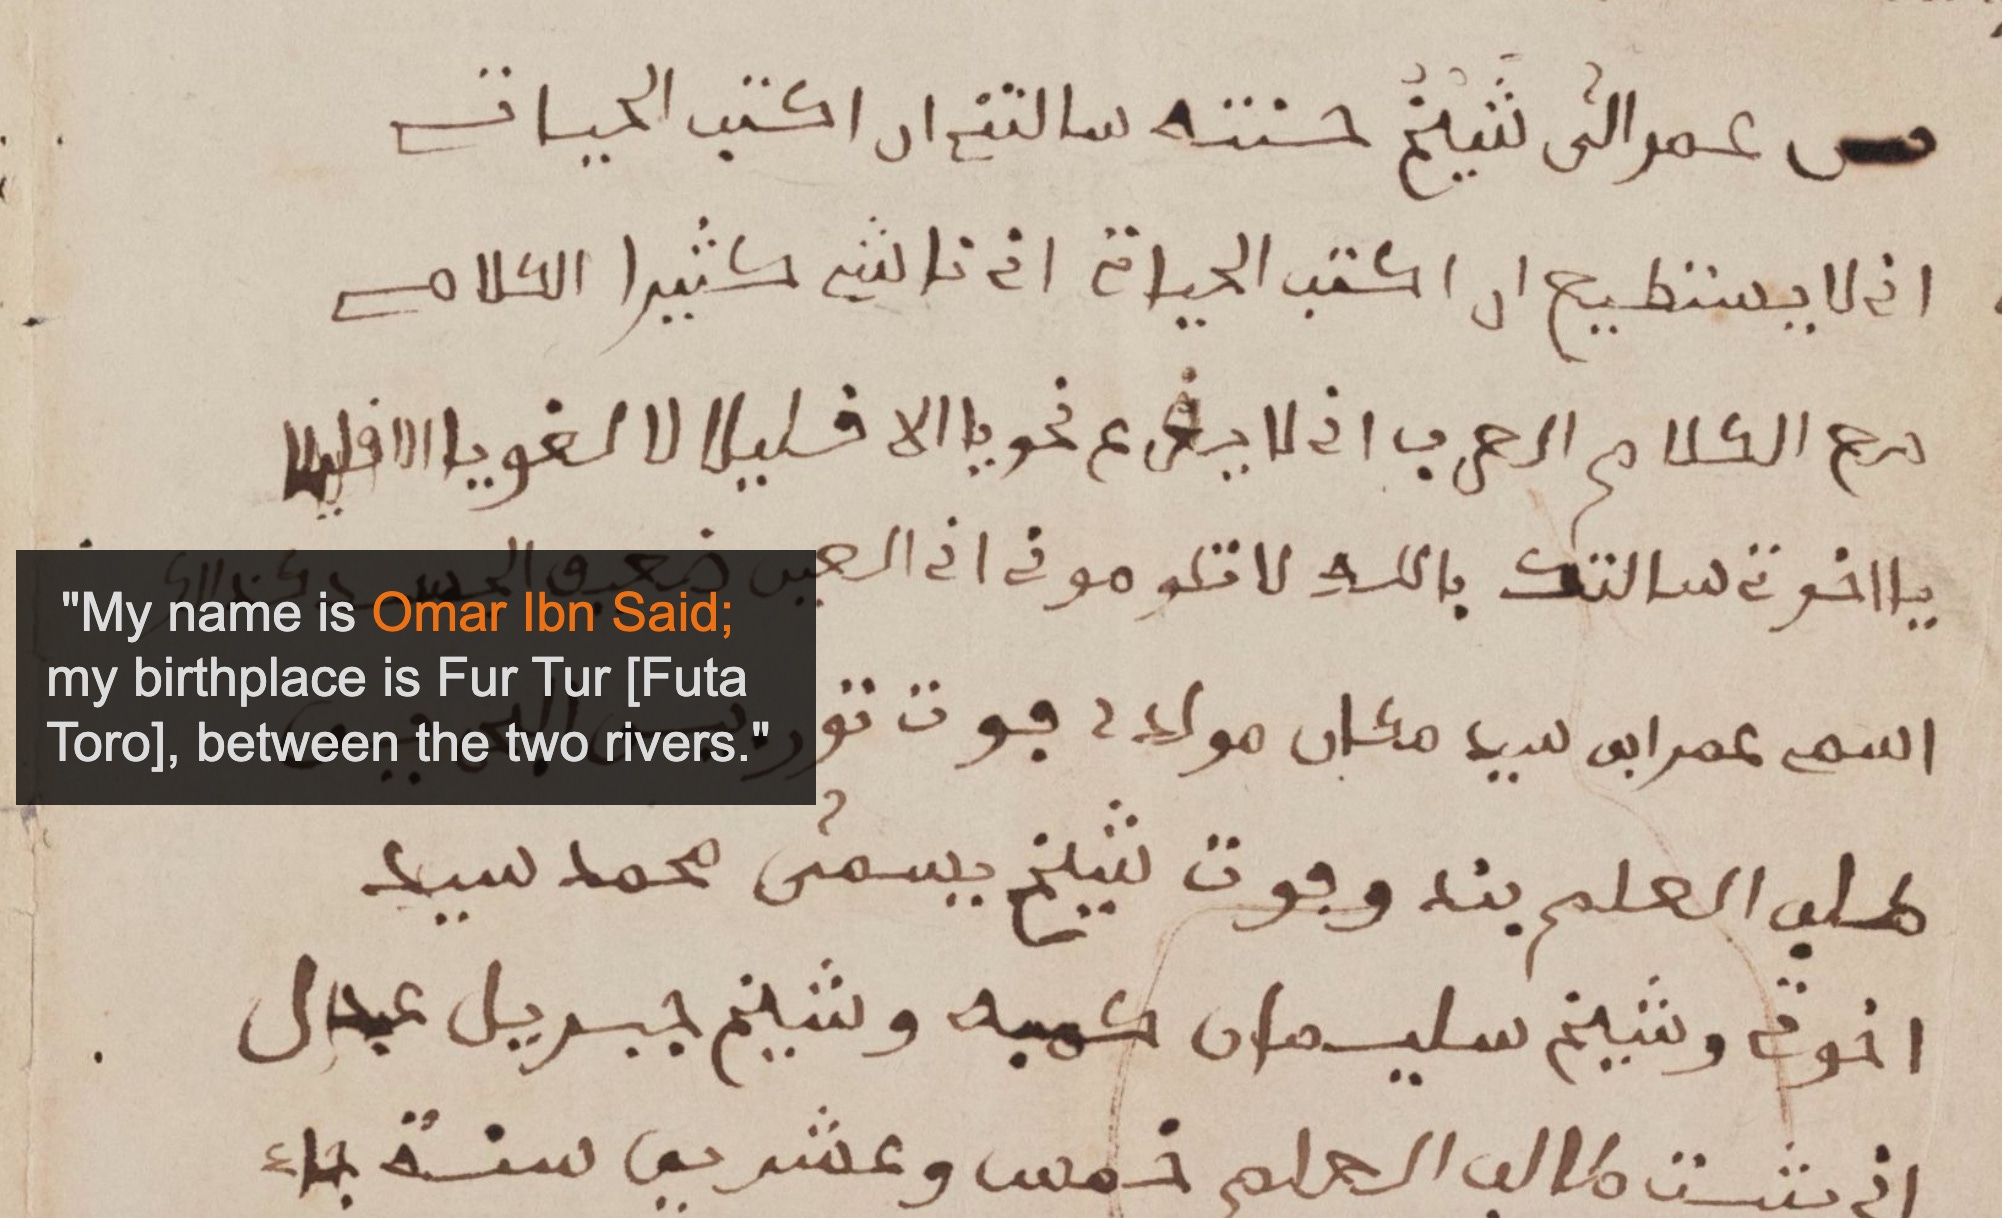 من عمر الى شيخ حنته سالتني ان اكتب الحياتي
اني لا يستطيع ان اكتب الحياتي اني ناشي كثيرا الكلامي
مع الكلام العرب اني لا نحويا الا قليلا لا لغويا الا قليلا
يا اخوتي سالتك بالله لا تلوموني اني العين ضعيف
اسمي عمر ابن سيد مكان مولدي فوت تور بين البحرين
طلب العلم بند وفوت شيخ يسمى محمد سيد
اخوتي وشيخ سليمان كمبه وشيخ جبريل عبدال
اني طالب العلم خمس وعشرين سنة جاء
"My name is Omar Ibn Said;
my birthplace is Fur Tur [Futa
Toro], between the two rivers."